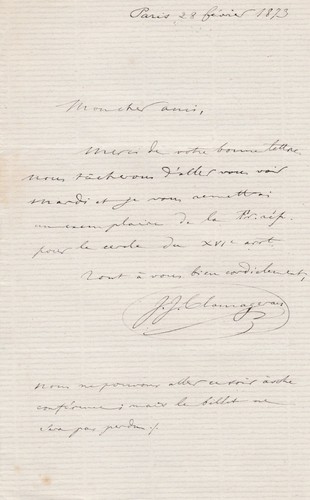 Paris 28 février 1873
Mon cher ami,
Merci de votre bonne lettre
nous tâcherons d'aller vous voir
mardi et je vous remettrai
un exemplaire de la
pour le cercle du XVIe arrt.
Tout à vous bien cordialement,
J. J. Clamageran
nous ne pouvons aller ce soir à votre
conférence; mais le billet ne
sera pas perdu.